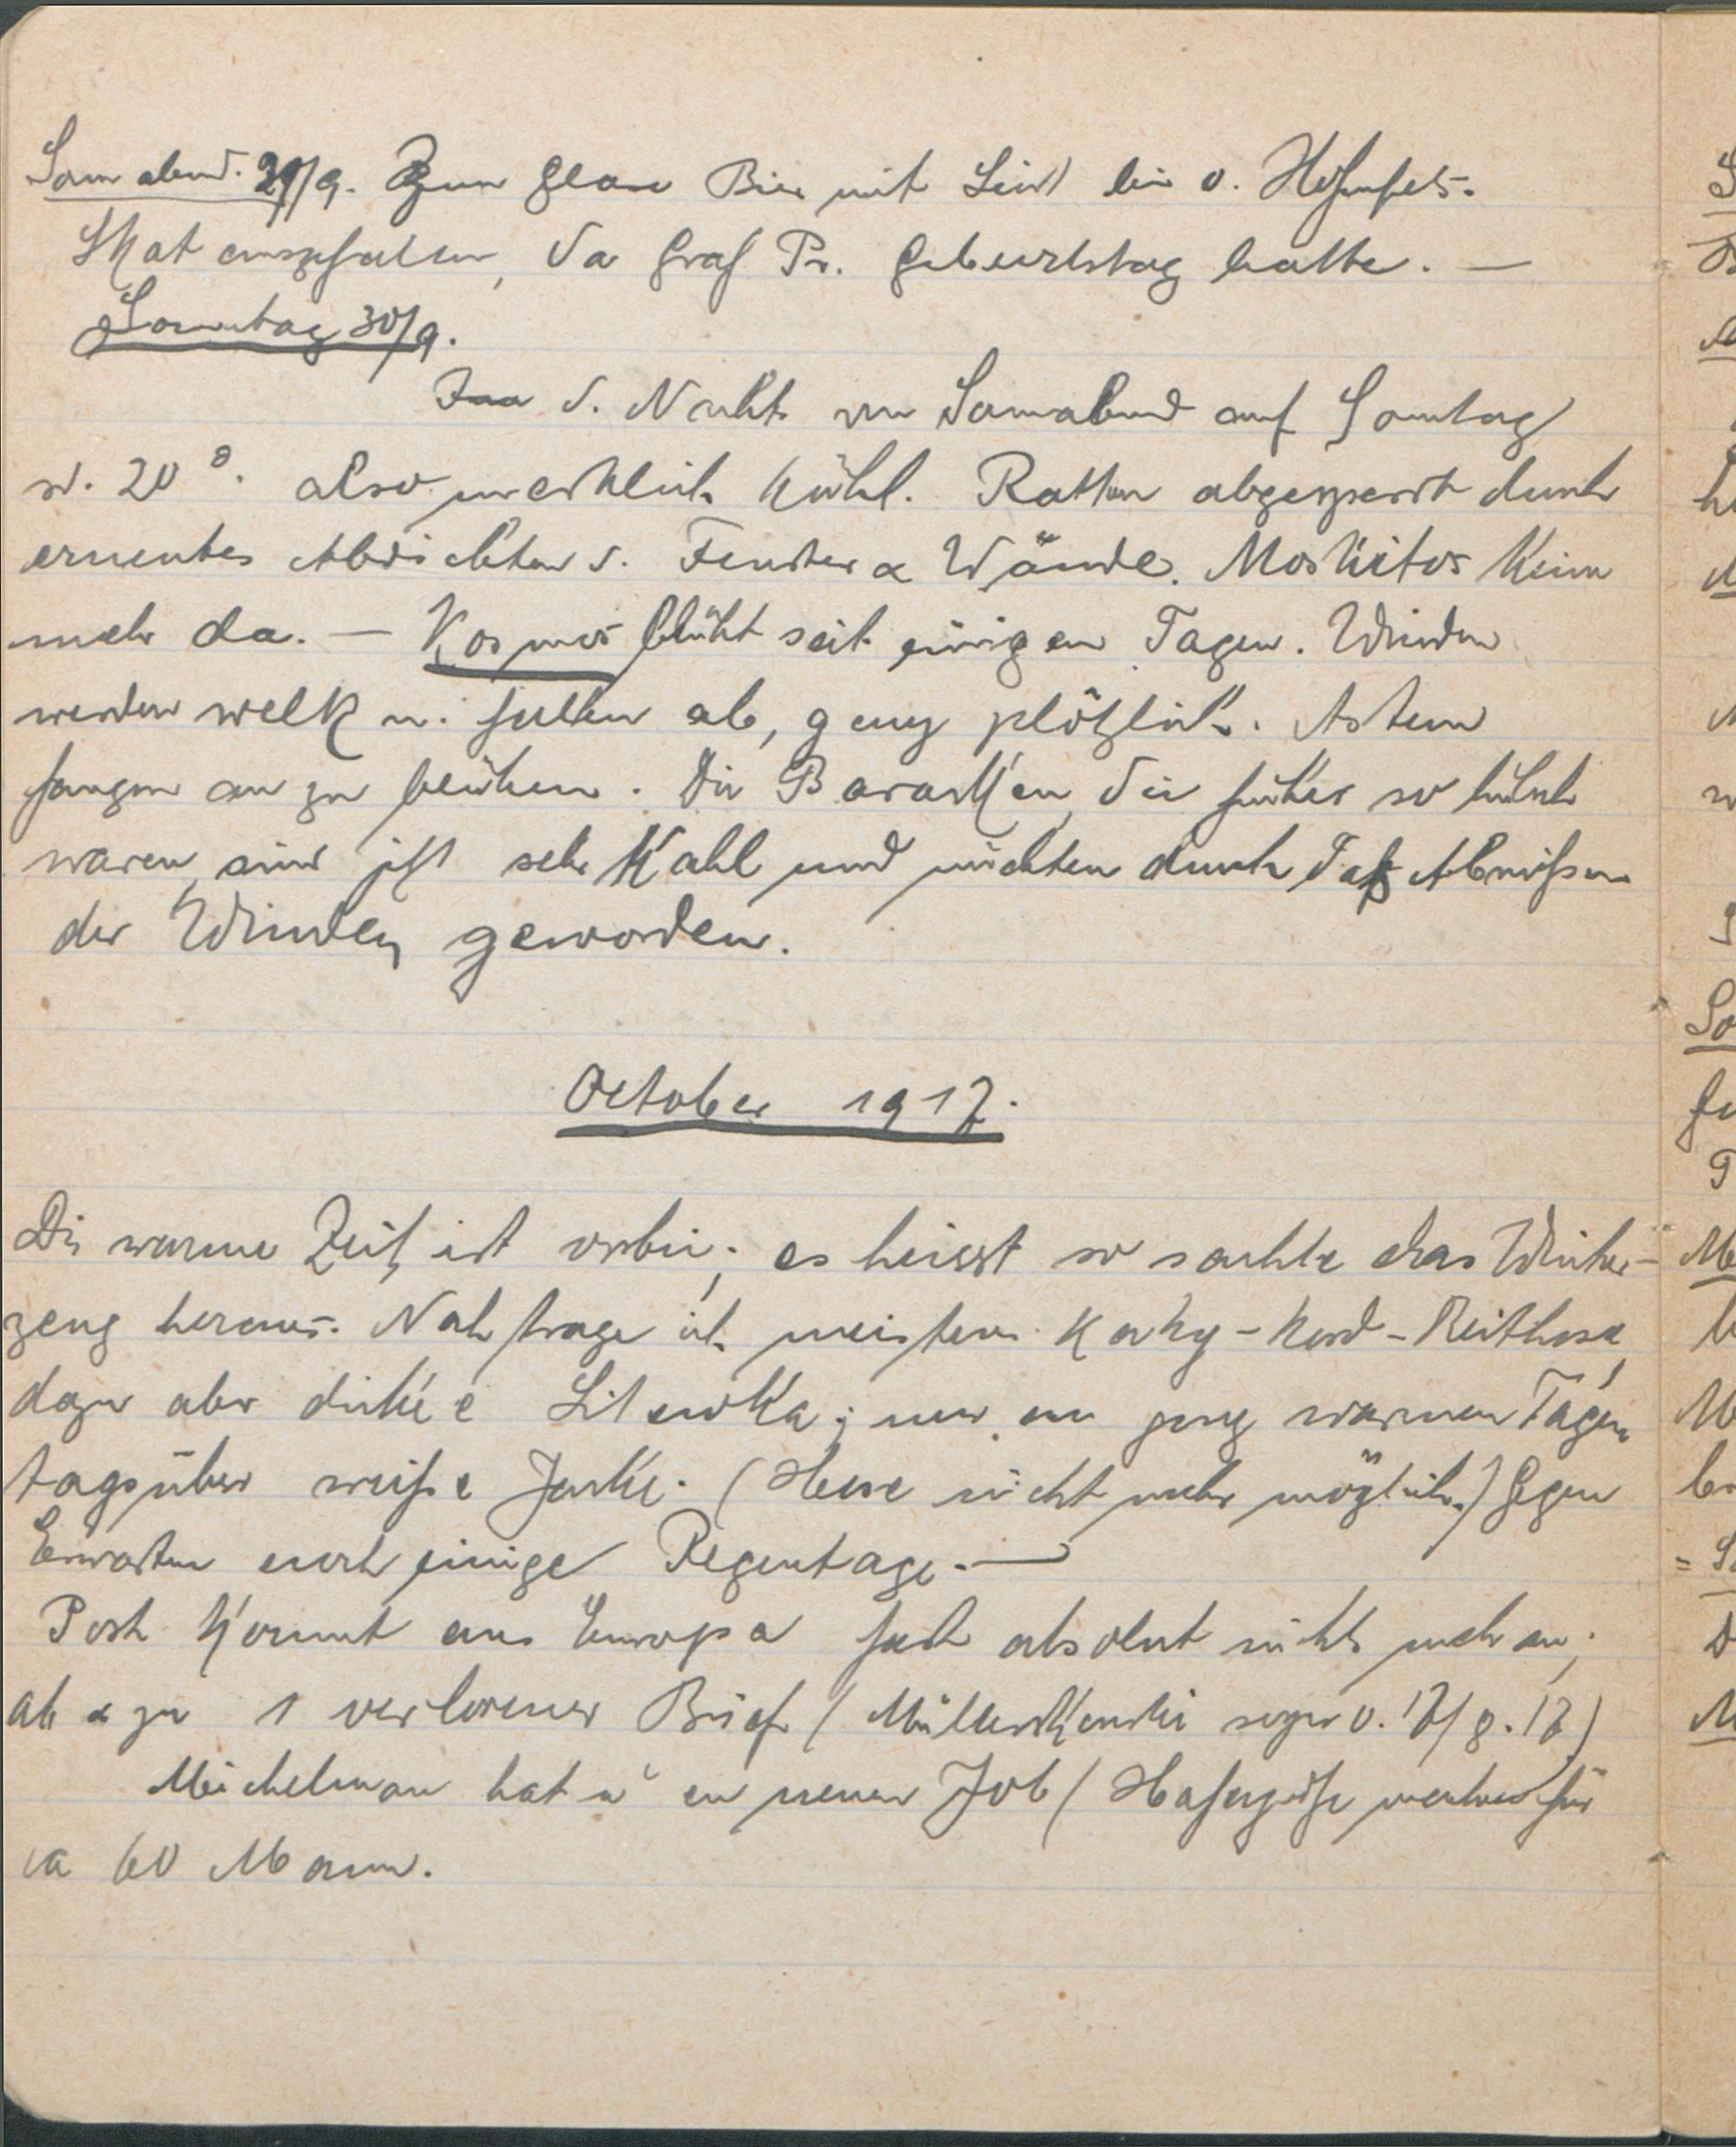 Sonnabend. 29/9. Zum Glase Bier mit Lindl bei v. Hohenfels.
Skat ausgefallen, da Graf Pr. Geburtstag hatte. —
Sonntag 30/9.
d. Nacht von Sonnabend auf Sonntag
20°. also merklich kühl. Ratten abgesperrt durch
erneutes Abdichten d. Fenster & Wände. Moskitos kein
mehr da. — Kosmos blüht seit einigen Tagen. Winden
werden welk u. fallen ab, ganz plötzlich. Astern
fangen an zu blühen. Die Baracken, die früher so hübsch
waren, sind jetzt sehr kahl und nüchtern durch daß Abreißen
der Winden geworden.
October 1917.
Die warme Zeit ist vorbei; es heisst so sachte das Winter-
zeug heraus. Noch trage ich meistens Kaky-Kord-Reithose
dazu aber dicke Litewka; nur an ganz warmen Tagen
tagsüber weiße Jacke. (Hose nicht mehr möglich.) Gegen
Erwarten noch einige Regentage. —
Post kommt aus Europa fast absolut nichts mehr an;
ab & zu 1 verlorener Brief ( sogar v. 17/8. 17)
Michelman hat einen neuen Job ( für
ca 60 Mann.